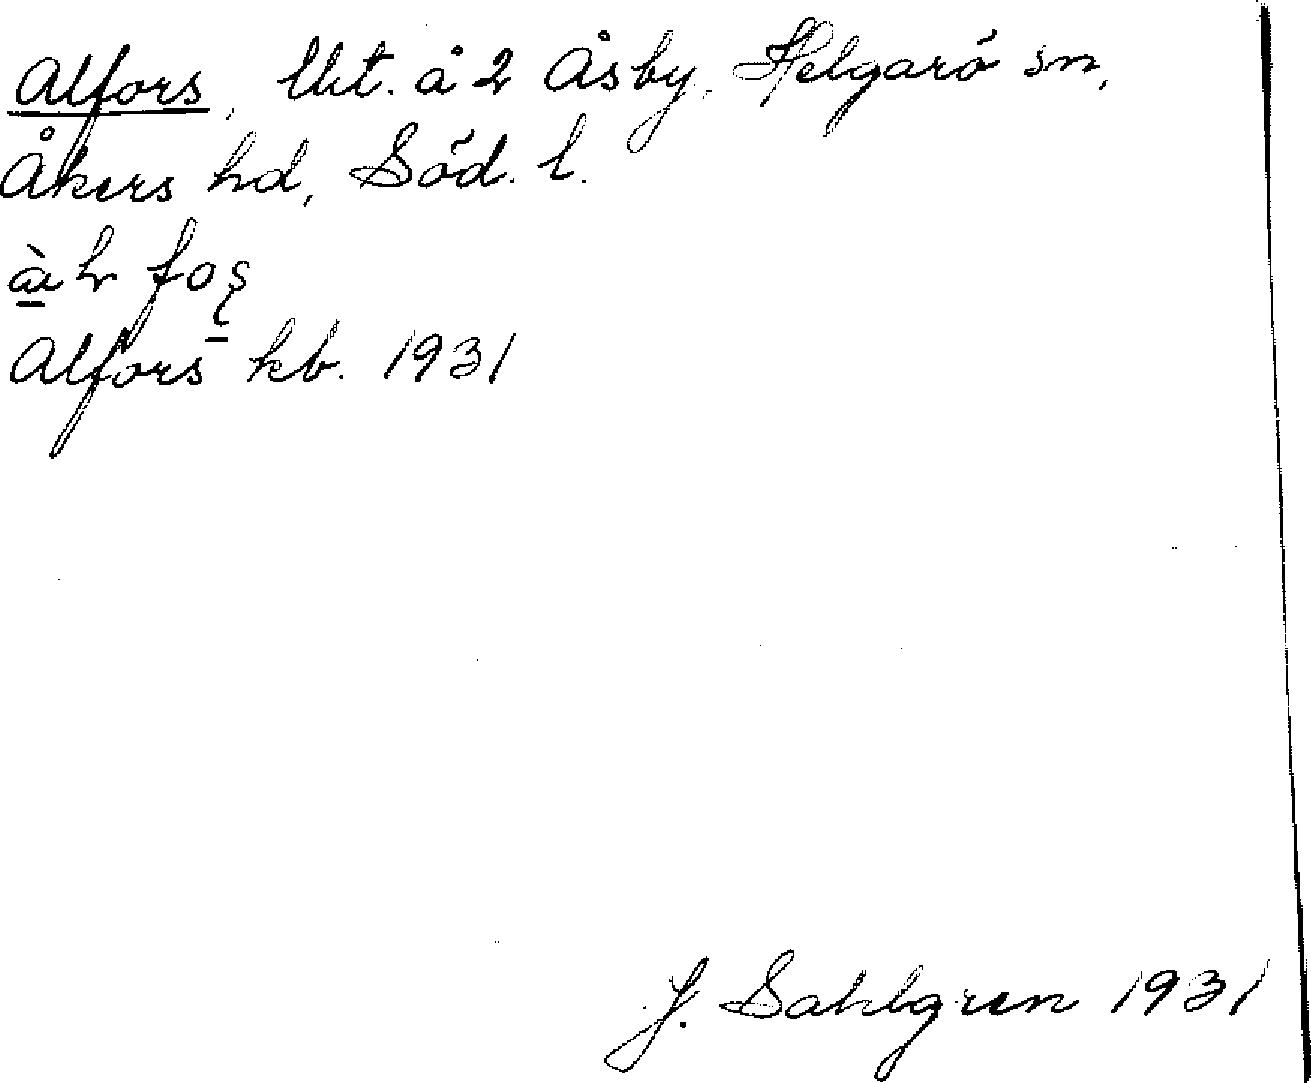 Alfors, lht. å 2 Åsby, Helgarö sn,
Åkers hd, Söd. l.
Alfors kb. 1931
J. Sahlgren 1931